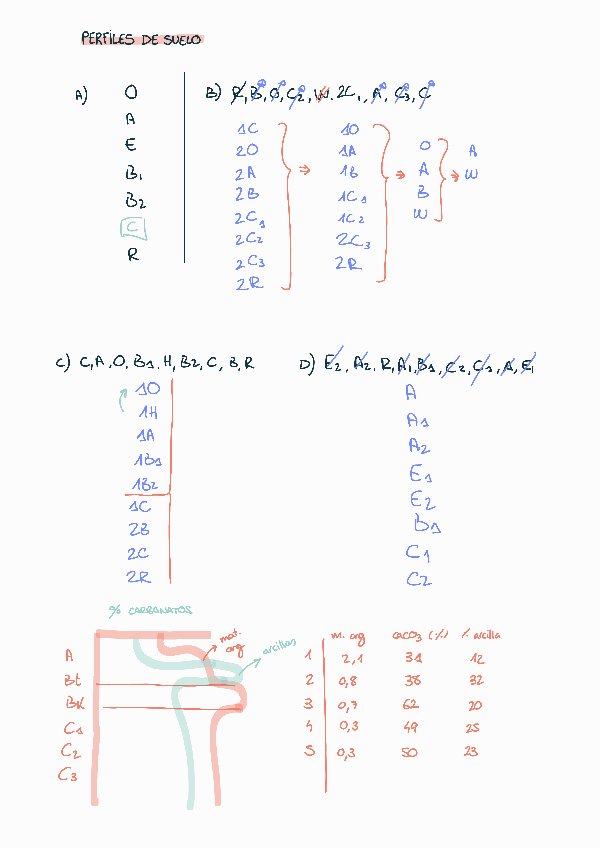 PERFILES DE SUELO
A)
O
A
E
B1
B2
C
R
B) R, B, O, C2, W, 2C1, A, C3, C
1C
2O
2A
2B
2C1
2C2
2C3
2R
⇒
1O
1A
1B
1C1
1C2
2C3
2R
⇒
O
A
B
W
⇒
A
W
C) C, A, O, B1, H, B2, C, B, R
1O
1H
1A
1B1
1B2
1C
2B
2C
2R
D) E2, A2, R, A1, B1, C2, C1, A, E1
A
A1
A2
E1
E2
B1
C1
C2
% CARBONATOS
mat. org
arcillas
A
Bt
Bk
C1
C2
C3
m. org CaCO3 (%) % arcilla
1 2,1 34 12
2 0,8 38 32
3 0,7 62 20
4 0,3 49 25
5 0,3 50 23